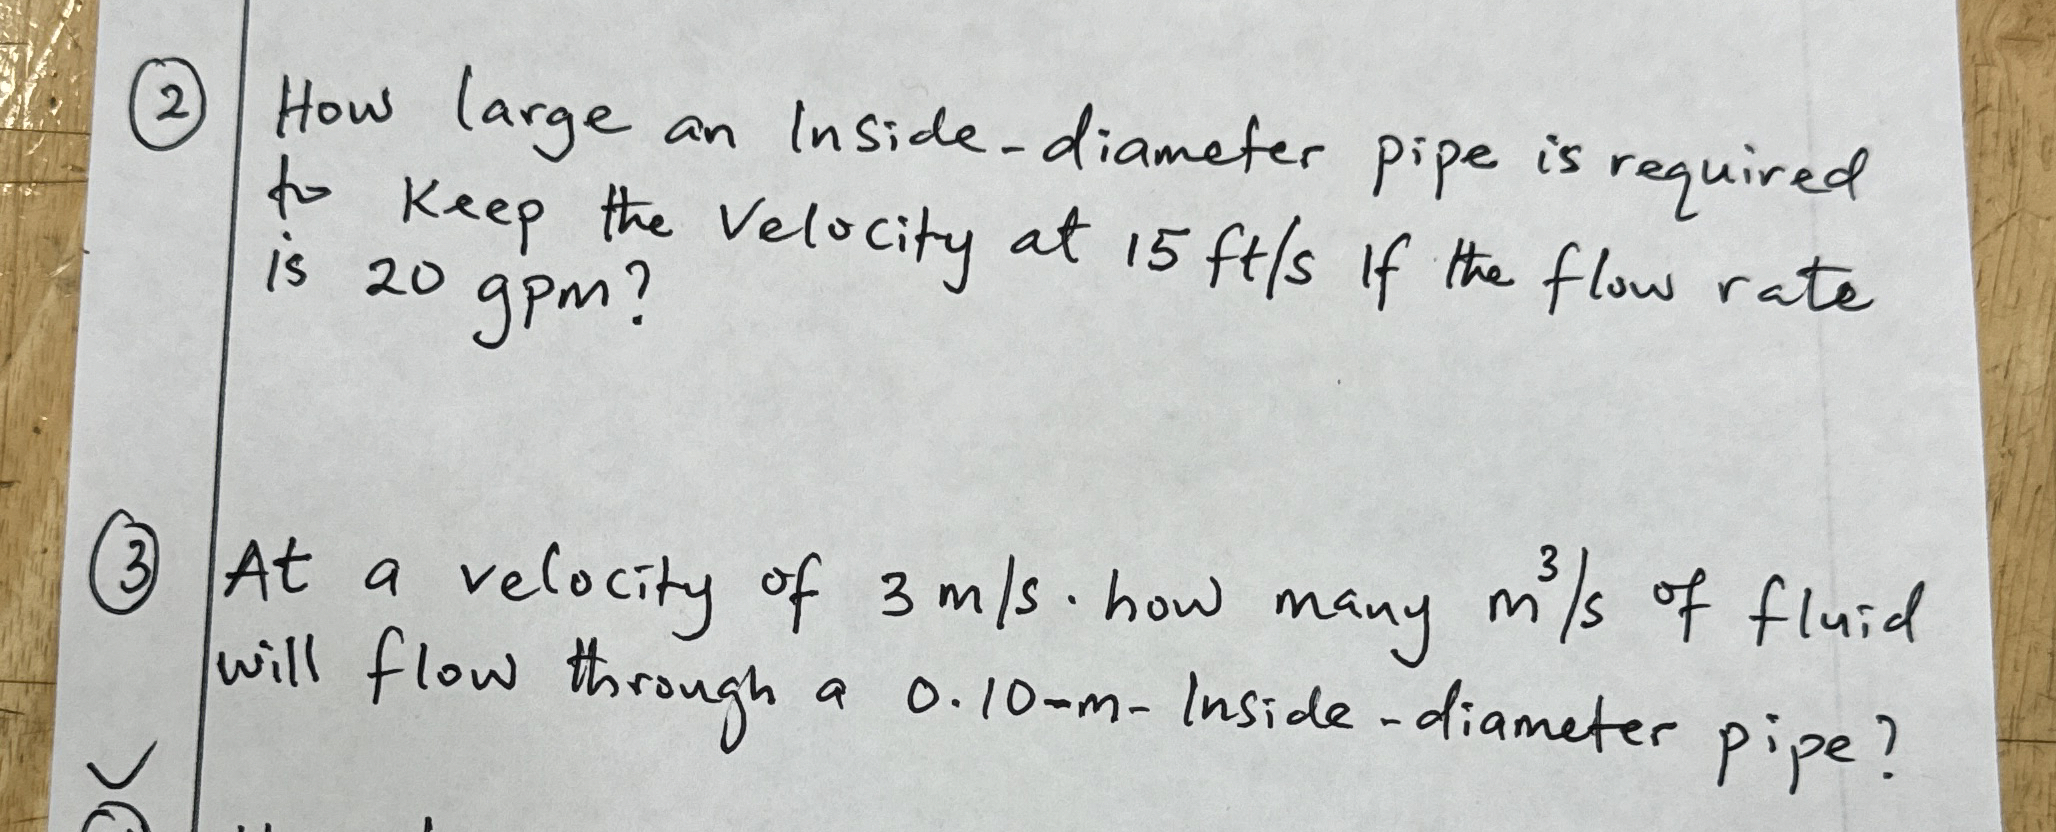 ② How large an Inside-diameter pipe is required
to Keep the Velocity at 15 ft/s If the flow rate
is 20 gpm?
③ At a velocity of 3 m/s. how many m³/s of fluid
will flow through a 0.10-m- Inside-diameter pipe?